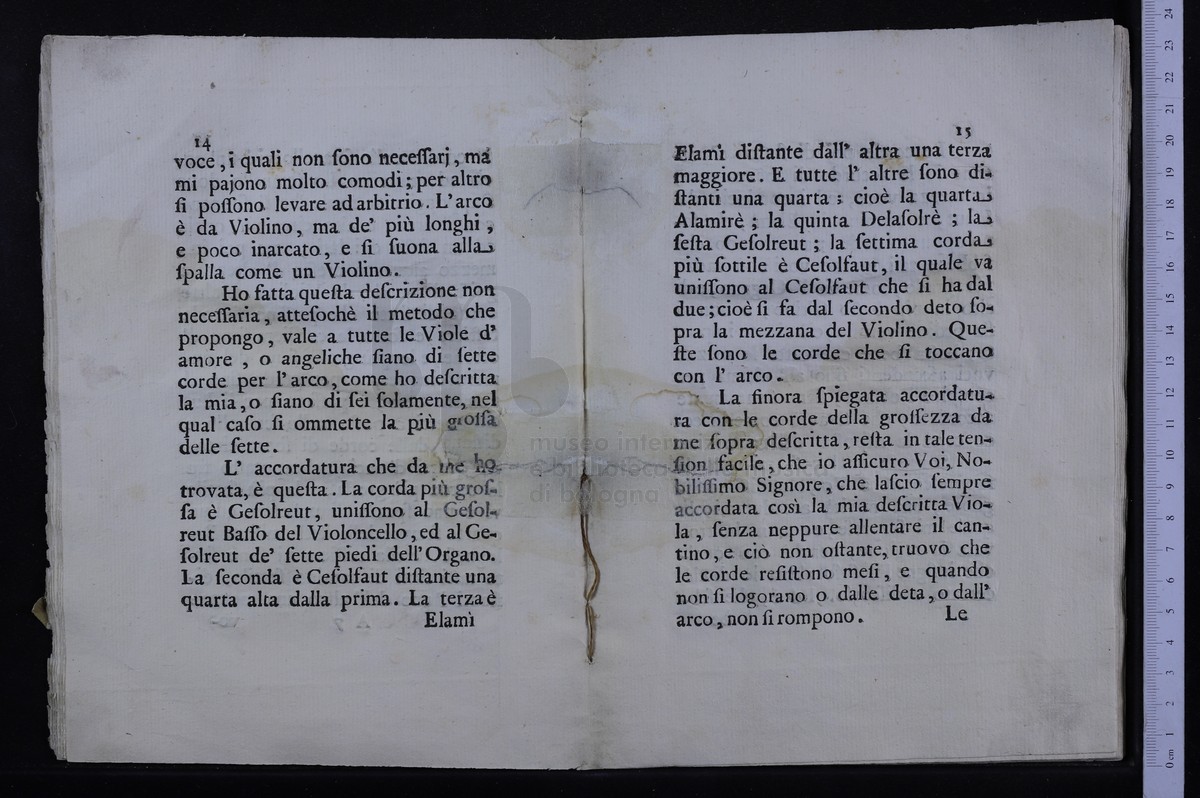 14
voce, i quali non ſono neceſſarj, má
mi pajono molto comodi; per altro
ſi poſſono levare ad arbitrio. L' arco
è da Violino, ma de' più longhi,
e poco inarcato, e ſi ſuona alla
ſpalla come un Violino.
Ho fatta queſta deſcrizione non
neceſſaria, atteſochè il metodo che
propongo, vale a tutte le Viole d'
amore, o angeliche ſiano di ſette
corde per l' arco, come ho deſcritta
la mia, o ſiano di ſei ſolamente, nel
qual caſo ſi ommette la più groſſa
delle ſette.
L' accordatura che da me ho
trovata, è queſta. La corda più groſ-
ſa è Geſolreut, uniſſono al Geſol-
reut Baſſo del Violoncello, ed al Ge-
ſolreut de' ſette piedi dell' Organo.
La ſeconda è Ceſolfaut diſtante una
quarta alta dalla prima. La terza è
Elamì
15
Elamì diſtante dall' altra una terza
maggiore. E tutte l' altre ſono di-
ſtanti una quarta; cioè la quarta
Alamirè; la quinta Delaſolrè; la
ſeſta Geſolreut; la ſettima corda
più ſottile è Ceſolfaut, il quale va
uniſſono al Ceſolfaut che ſi ha dal
due; cioè ſi fa dal ſecondo deto ſo-
pra la mezzana del Violino. Que-
ſte ſono le corde che ſi toccano
con l' arco.
La finora ſpiegata accordatu-
ra con le corde della groſſezza da
me ſopra deſcritta, reſta in tale ten-
ſion facile, che io aſſicuro Voi, No-
biliſſimo Signore, che laſcio ſempre
accordata così la mia deſcritta Vio-
la, ſenza neppure allentare il can-
tino, e ciò non oſtante, truovo che
le corde reſiſtono meſi, e quando
non ſi logorano o dalle deta, o dall'
arco, non ſi rompono.
Le
museo
e biblioteca
di bologna
0 cm 1 2 3 4 5 6 7 8 9 10 11 12 13 14 15 16 17 18 19 20 21 22 23 24